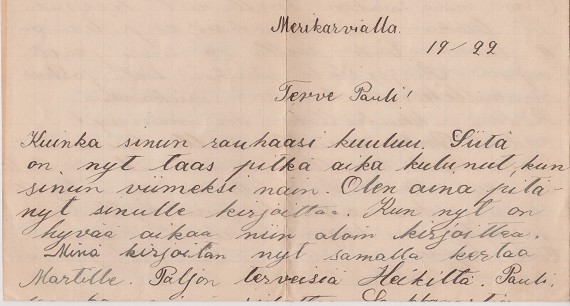 Merikarvialla.
19/22
Terve Pauli!
Kuinka sinun rauhaasi kuuluu. Siitä
on nyt taas pitkä aika kulunut, kun
sinun viimeksi näin. Olen aina pitä-
nyt sinulle kirjoittaa. Kun nyt on
hyvää aikaa niin aloin kirjoittaa.
Minä kirjoitan nyt samalla kertaa
Martille. Paljon terveisiä Heikiltä. Pauli,